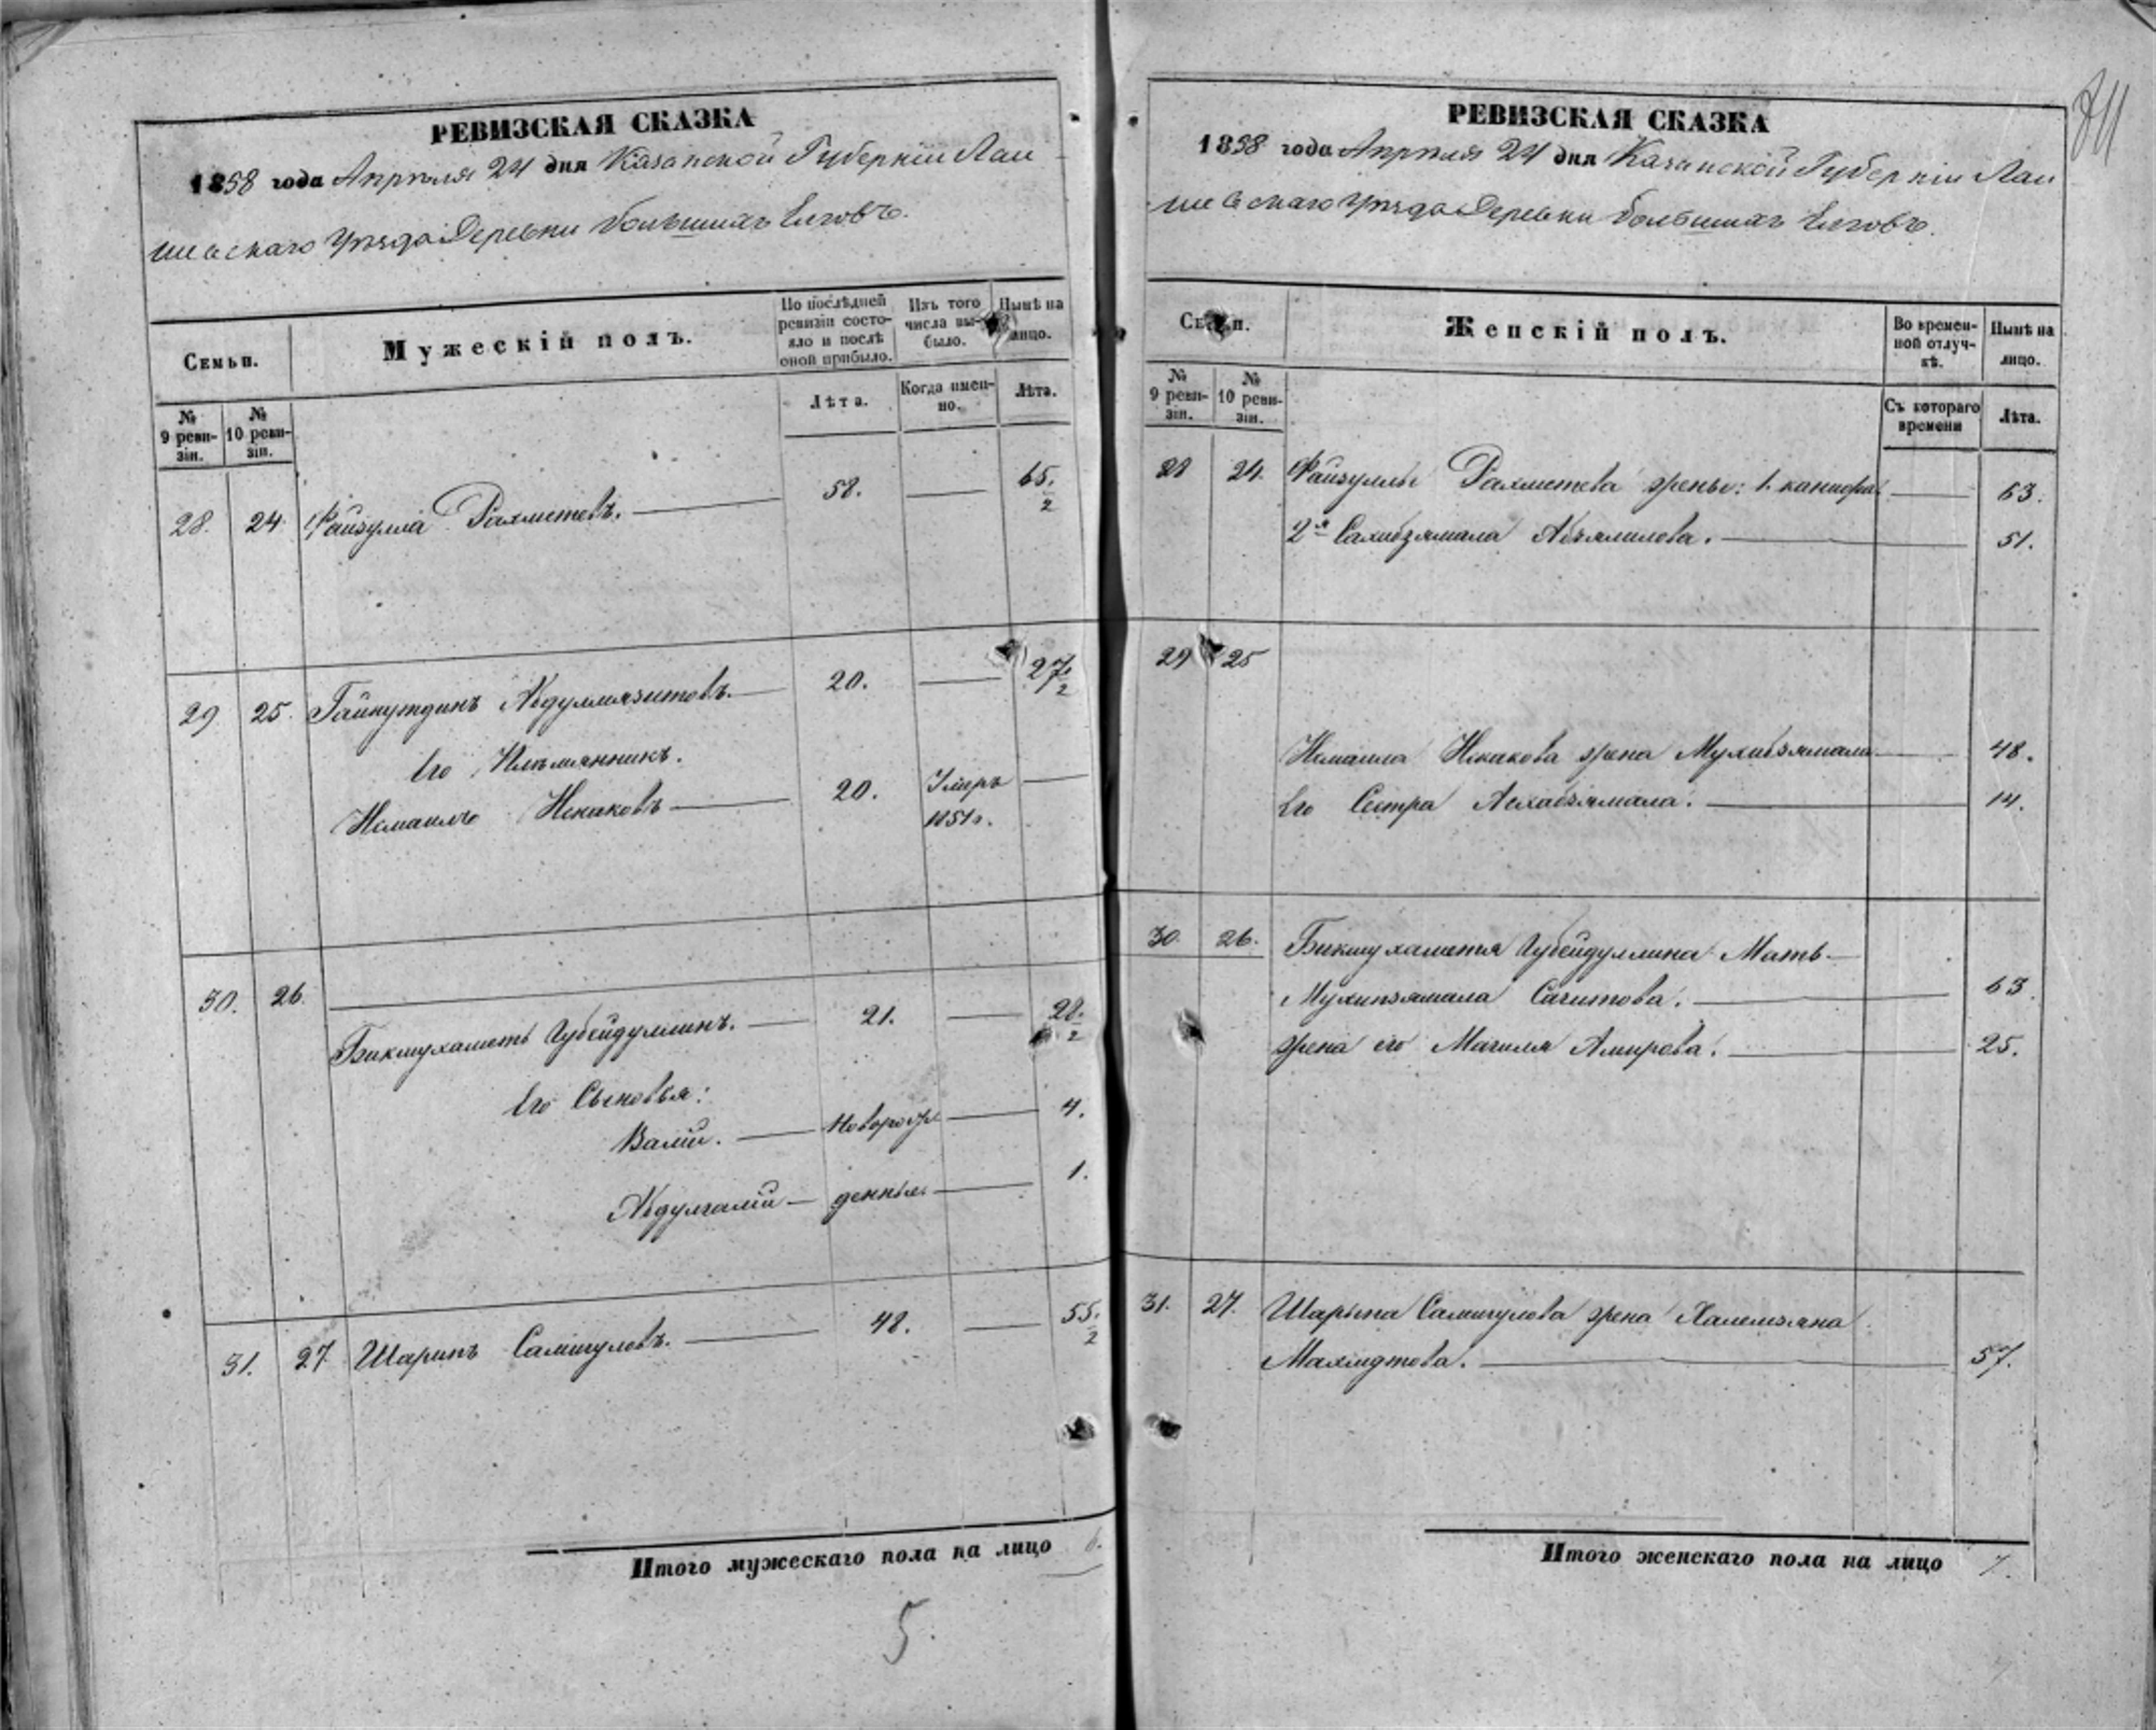 РЕВИЗСКАЯ СКАЗКА
1858 года Апрѣля 24 дня Казанской Губерніи Лаи
шевскаго Уѣзда Деревни большихъ Елговъ.
Семьи.
Мужескій полъ.
По послѣдней ревизіи состояло и послѣ оной прибыло.
Изъ того числа выбыло.
Нынѣ на лицо.
№ 9 ревизіи.
№ 10 ревизіи.
Лѣта.
Когда именно.
Лѣта.
28. 24. Файзулла Рахметевъ. 58. 65. 2
29 25. Гайнутдинъ Абдуллязитовъ. 20. 27. 2
Его Племянникъ.
Исмаилъ Искаковъ 20. Умеръ
1851.
30. 26.
Бикмухаметь Губейдуллинъ. 21. 28. 2
Его Сыновья:
Валій. новорож 4.
Абдулгалій денные 1.
31. 27 Шарипъ Самигуловъ. 48. 55. 2
Итого мужескаго пола на лицо 6.
5.
РЕВИЗСКАЯ СКАЗКА
1858 года Апрѣля 24 дня Казанской Губерніи Лаи
шевскаго Уѣзда Деревни большихъ Елговъ.
Семьи.
Женскій полъ.
Во временной отлучкѣ.
Нынѣ на лицо.
№ 9 ревизіи.
№ 10 ревизіи.
Съ котораго времени
Лѣта.
28 24. Файзуллы Рахметева жены: 1. 63.
2я Сахибзямала Абзялилова. 51.
29 25
Исмаила Искакова жена Мухибзямала 48.
Его Сестра Асхабзямала. 14.
30. 26. Бикмухаметя Губейдуллина Мать
Мухипзямала Сагитова. 63.
жена его Магиля Амирова. 25.
31. 27. Шарыпа Самигулова жена
Махмутова. 57.
Итого женскаго пола на лицо 7.